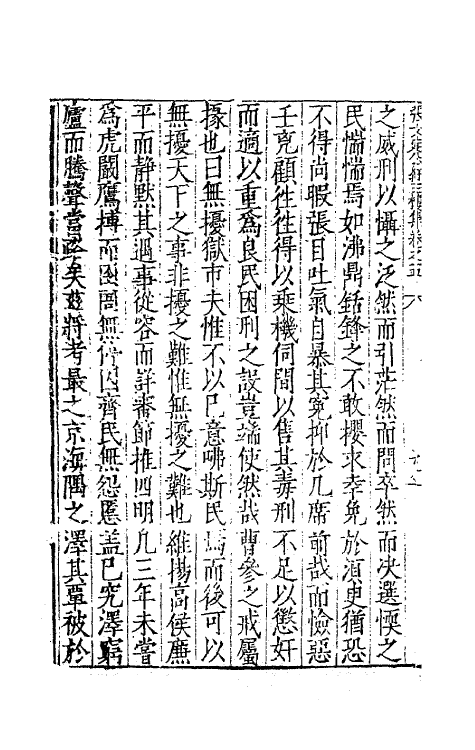 之威刑以懾之泛然而引茫然而問卒然而决選愞之
民惴惴焉如沸鼎銛鋒之不敢攖求幸免於湏臾猶恐
不得尚暇張目吐氣自暴其寃抑於几席前哉而憸惡
壬克顧徃徃得以乘機伺間以售其毒刑不足以懲奸
而適以重爲良民困刑之設豈端使然哉曹參之戒屬
掾也曰無擾獄市夫惟不以已意咈斯民焉而後可以
無擾天下之事非擾之難惟無擾之難也維揚髙侯廉
平而静默其遇事從容而詳審節推四明几三年未嘗
爲虎鬬鷹搏而囹圄無停囚齊民無怨慝盖已究澤窮
廬而騰聲當宁矣兹將考最之京海隅之澤其覃被於